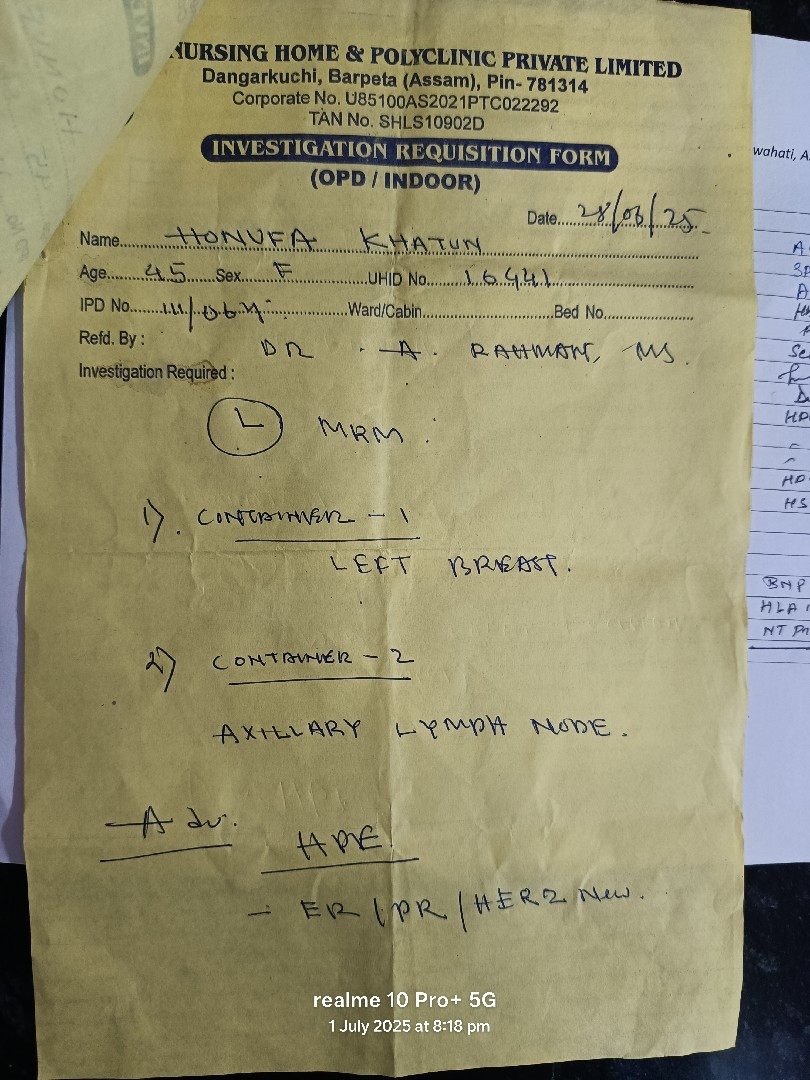 NURSING HOME & POLYCLINIC PRIVATE LIMITED
Dangarkuchi, Barpeta (Assam), Pin- 781314
Corporate No. U85100AS2021PTC022292
TAN No. SHLS10902D
INVESTIGATION REQUISITION FORM
(OPD / INDOOR)
Date....28/06/25
Name....HONUFA KHATUN
Age....45....Sex....F....UHID No....16441
IPD No.... Ward/Cabin....Bed No....
Refd. By : DR. A. RAHMAN, MS.
Investigation Required :
L MRM.
1). CONTAINER - 1
LEFT BREAST.
2) CONTAINER - 2
AXILLARY LYMPH NODE.
Adv.
HPE
- ER/PR/HER2 New.
realme 10 Pro+ 5G
1 July 2025 at 8:18 pm
wahati, A
HS
BNP
HLA
NT